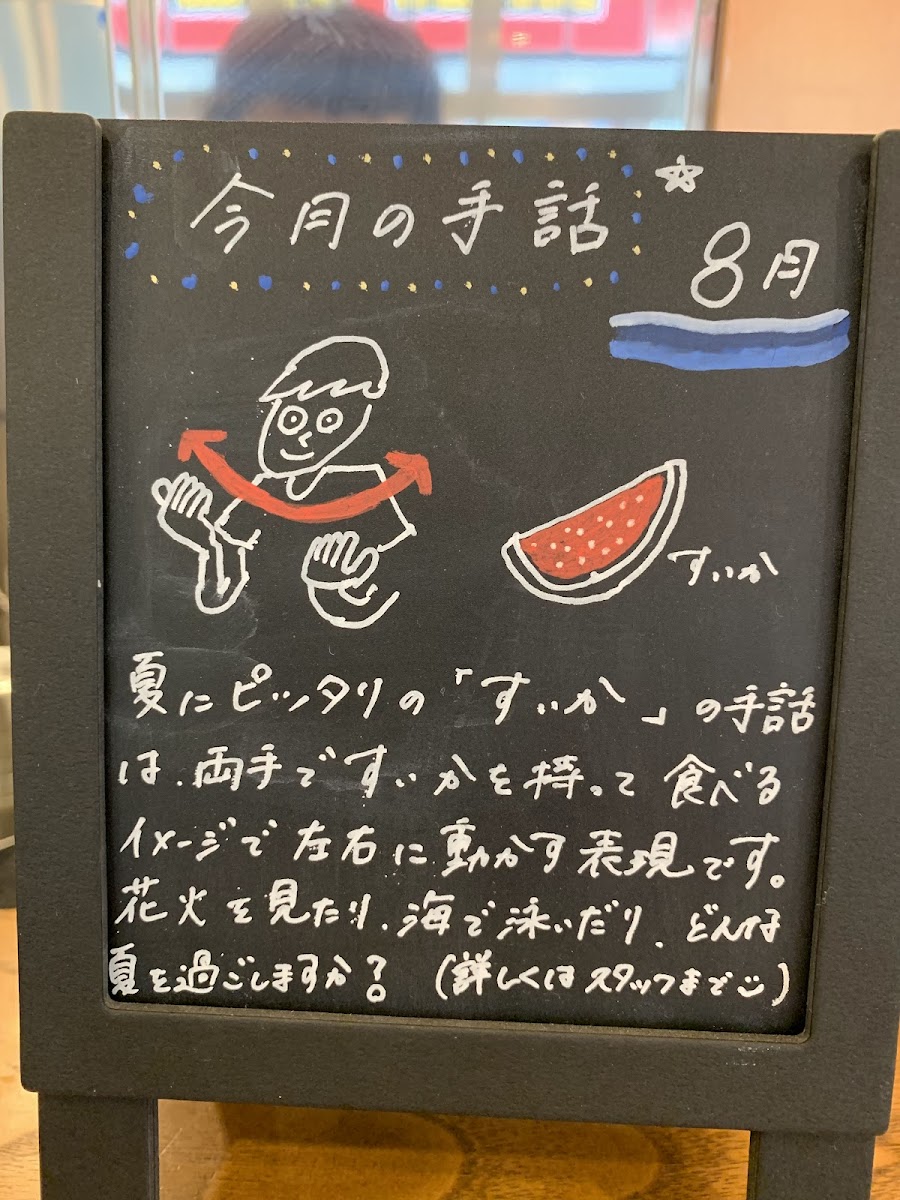 今月の手話
8月
すいか
夏にピッタリの「すいか」の手話
は、両手ですいかを持って食べる
イメージで左右に動かす表現です。
花火を見たり、海で泳いだり、どんな
夏を過ごしますか？（詳しくはスタッフまで）